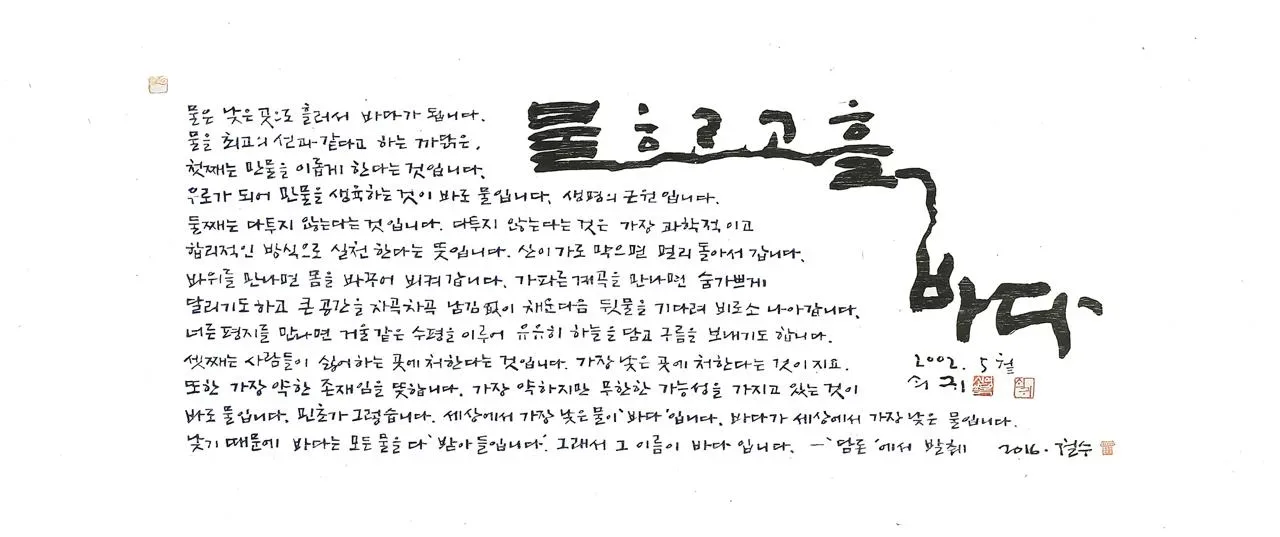 물은 낮은곳으로 흘러서 바다가 됩니다.
물을 최고의 선과 같다고 하는 까닭은,
첫째는 만물을 이롭게 한다는 것입니다.
우로가 되어 만물을 생육하는 것이 바로 물입니다. 생명의 근원입니다.
둘째는 다투지 않는다는 것입니다. 다투지 않는다는 것은 가장 과학적이고
합리적인 방식으로 실천한다는 뜻입니다. 산이 가로막으면 멀리 돌아서 갑니다.
바위를 만나면 몸을 바꾸어 비켜갑니다. 가파른 계곡을 만나면 숨가쁘게
달리기도 하고 큰 공간을 차곡차곡 남김없이 채운 다음 뒷물을 기다려 비로소 나아갑니다.
너른 평지를 만나면 거울같은 수평을 이루어 유유히 하늘을 담고 구름을 보내기도 합니다.
셋째는 사람들이 싫어하는 곳에 처한다는 것입니다. 가장 낮은 곳에 처한다는 것이지요.
또한 가장 약한 존재임을 뜻합니다. 가장 약하지만 무한한 가능성을 가지고 있는 것이
바로 물입니다. 민초가 그렇습니다. 세상에서 가장 낮은 물이 '바다'입니다. 바다가 세상에서 가장 낮은 물입니다.
낮기 때문에 바다는 모든 물을 다 '받아들입니다'. 그래서 그 이름이 바다입니다. —'담론'에서 발췌 2016. 철수
물 흐르고 흘
바다
2002. 5월
쇠귀